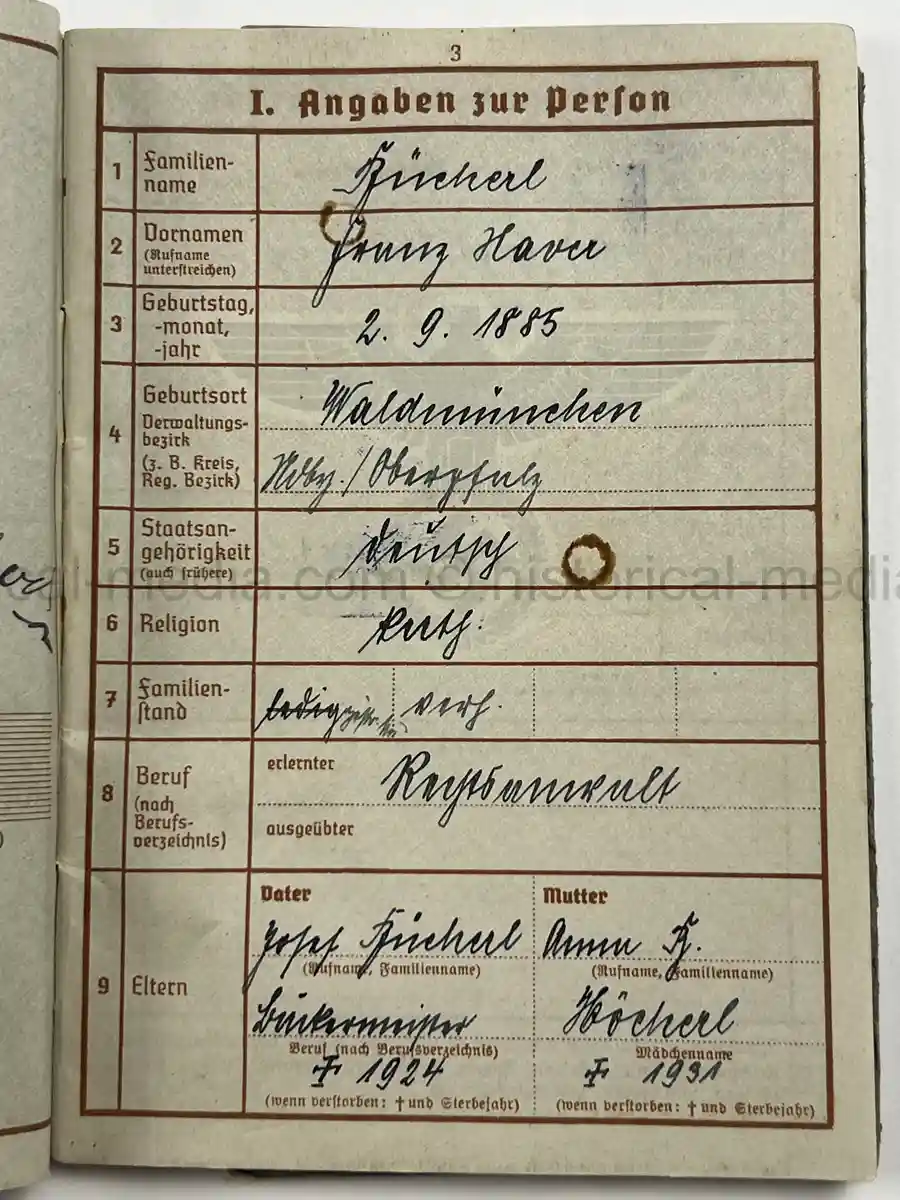 3
I. Angaben zur Person
1 Familien-
name
Fücherl
2 Vornamen
(Rufname
unterstreichen)
Franz Xaver
3 Geburtstag,
-monat,
-jahr
2. 9. 1885
4 Geburtsort
Verwaltungs-
bezirk
(z. B. Kreis,
Reg. Bezirk)
Waldmünchen
Ndby./Oberpfalz
5 Staatsan-
gehörigkeit
(auch frühere)
deutsch
al-media.com © historical-media
6 Religion
kath.
7 Familien-
stand
ledig verh.
8 Beruf
(nach
Berufs-
verzeichnis)
erlernter
Rechtsanwalt
ausgeübter
9 Eltern
Vater
Josef Fücherl
(Rufname, Familienname)
Bäckermeister
Beruf (nach Berufsverzeichnis)
† 1924
(wenn verstorben: † und Sterbejahr)
Mutter
Anna F.
(Rufname, Familienname)
Höcherl
Mädchenname
† 1931
(wenn verstorben: † und Sterbejahr)